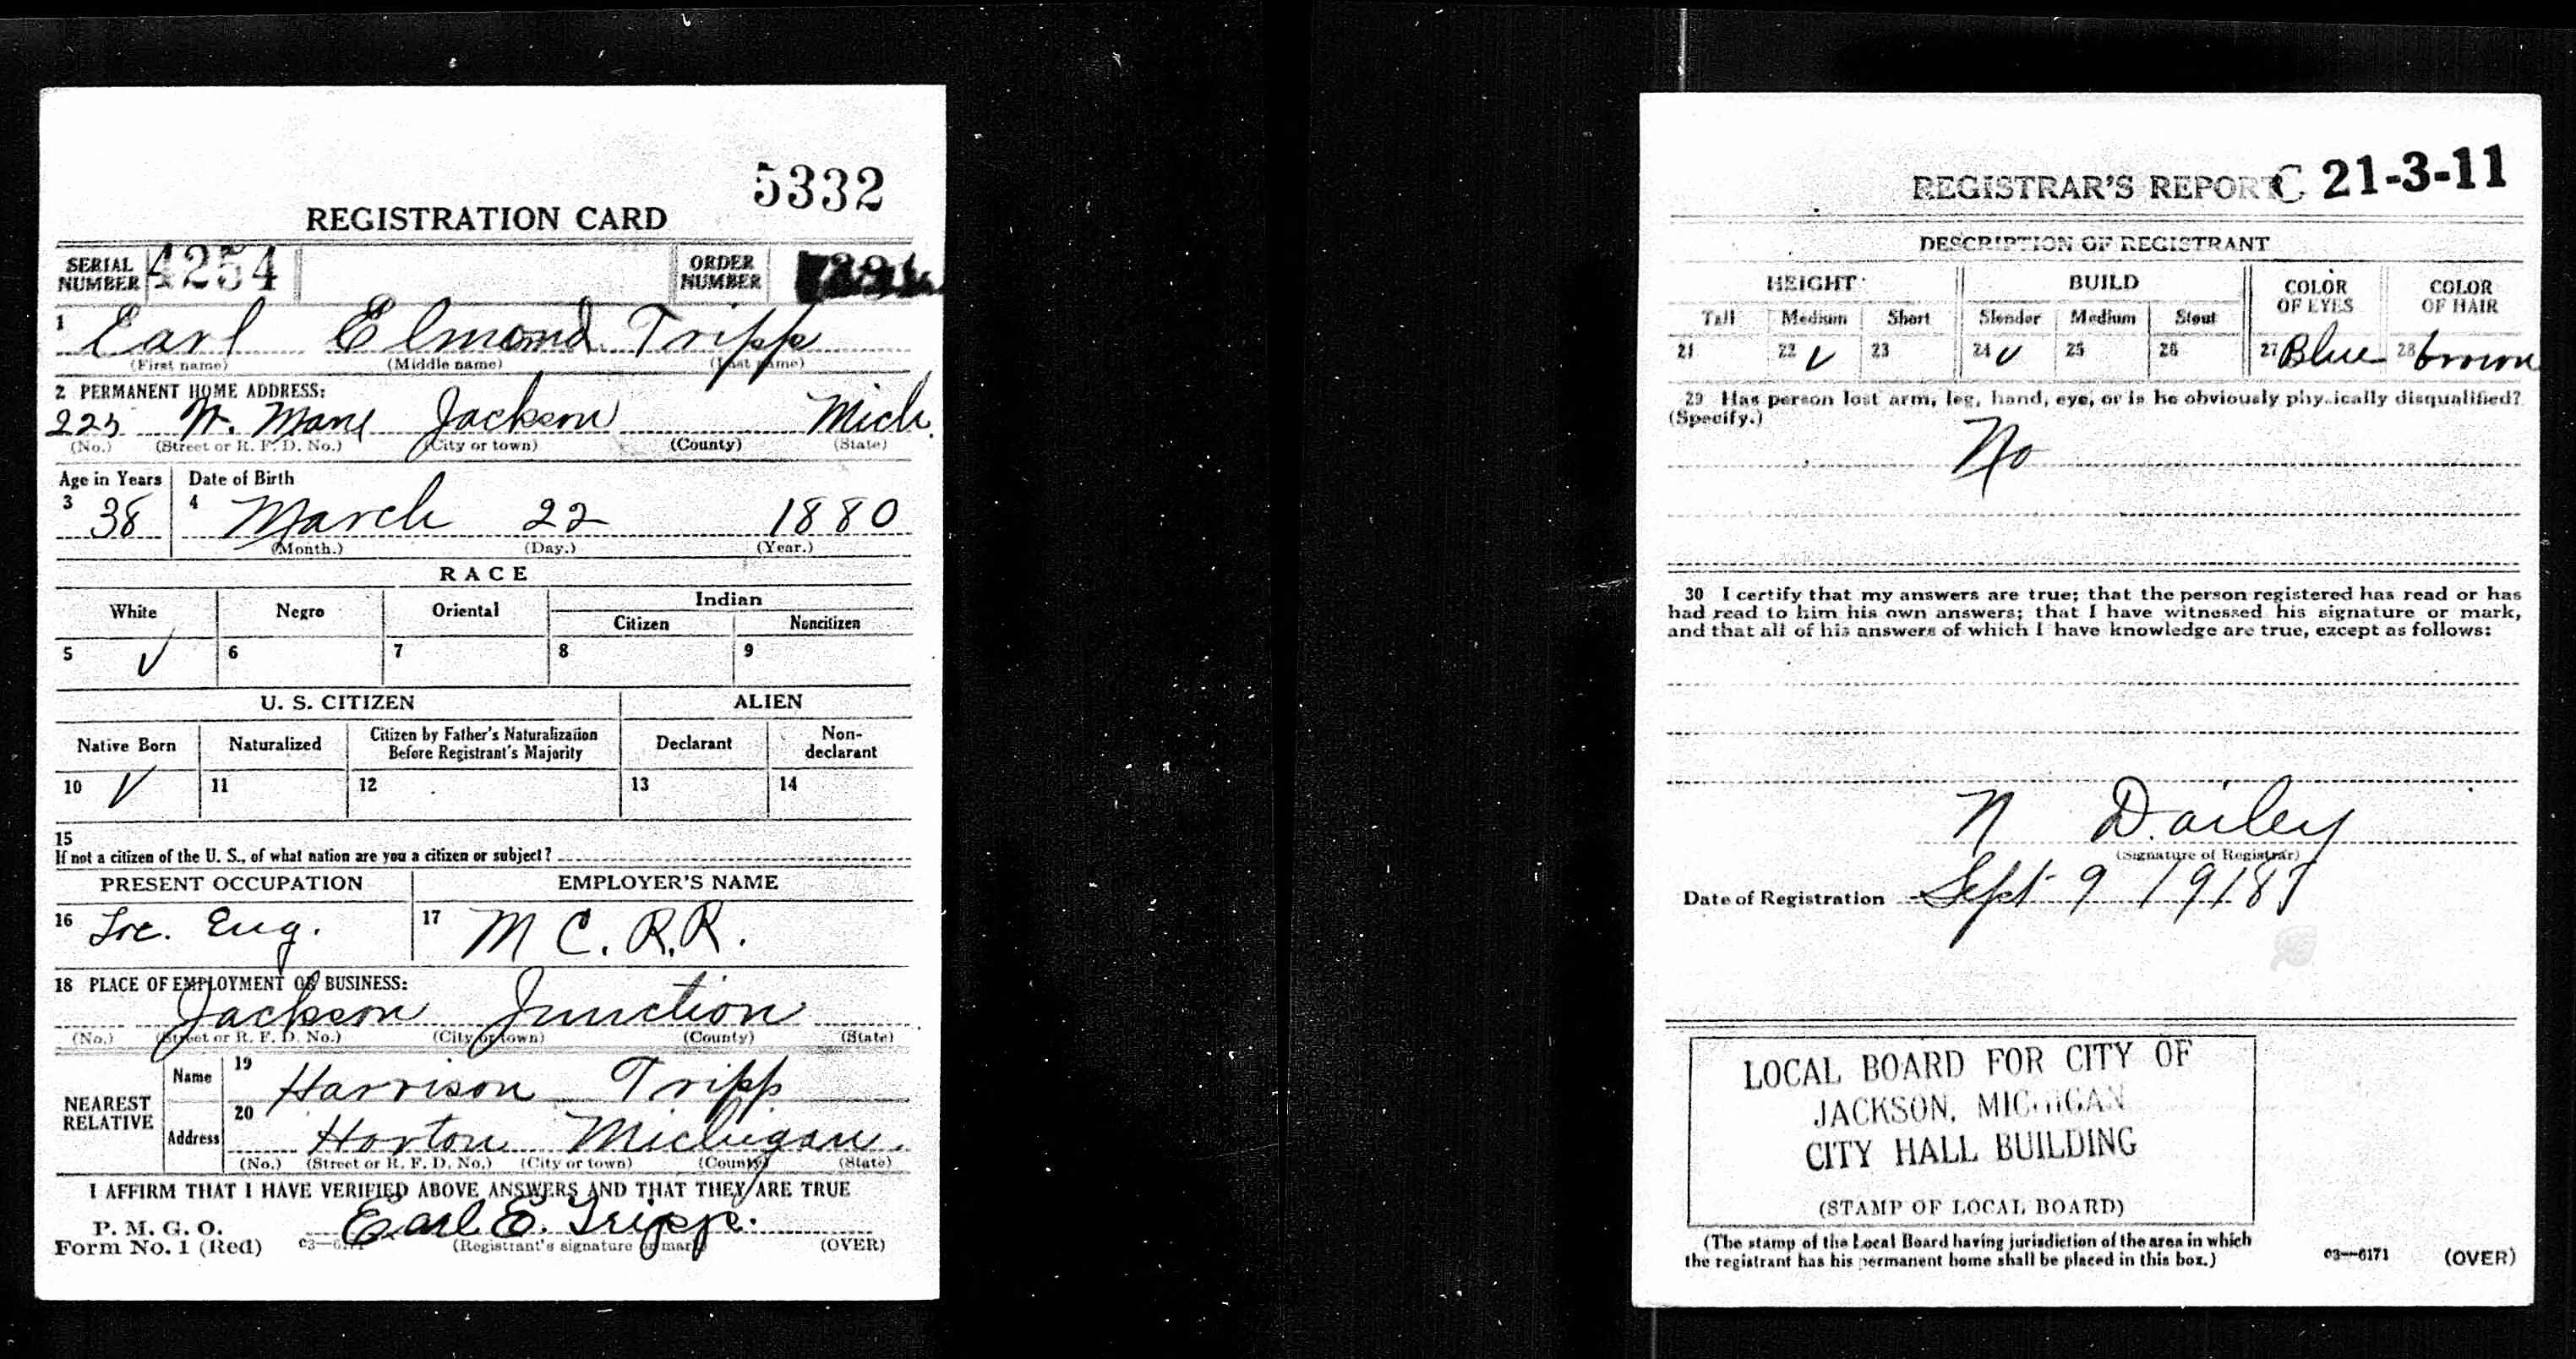 5332
REGISTRATION CARD
SERIAL NUMBER 4254 ORDER NUMBER
1 Earl Elmond Tripp
(First name) (Middle name) (Last name)
2 PERMANENT HOME ADDRESS:
225 W. Jackson Mich.
(No.) (Street or R. F. D. No.) (City or town) (County) (State)
Age in Years Date of Birth
3 38 4 March 22 1880
(Month.) (Day.) (Year.)
RACE
White Negro Oriental Indian
Citizen Noncitizen
5 ✓ 6 7 8 9
U. S. CITIZEN ALIEN
Native Born Naturalized Citizen by Father's Naturalization Before Registrant's Majority Declarant Non-declarant
10 ✓ 11 12 13 14
15
If not a citizen of the U. S., of what nation are you a citizen or subject?
PRESENT OCCUPATION EMPLOYER'S NAME
16 Loc. Eng. 17 M C. R.R.
18 PLACE OF EMPLOYMENT OR BUSINESS:
Jackson Junction
(No.) (Street or R. F. D. No.) (City or town) (County) (State)
NEAREST RELATIVE
Name 19 Harrison Tripp
Address 20 Horton Michigan.
(No.) (Street or R. F. D. No.) (City or town) (County) (State)
I AFFIRM THAT I HAVE VERIFIED ABOVE ANSWERS AND THAT THEY ARE TRUE
P. M. G. O.
Form No. 1 (Red) Earl E. Tripp.
(Registrant's signature or mark) (OVER)
REGISTRAR'S REPORT C 21-3-11
DESCRIPTION OF REGISTRANT
HEIGHT BUILD COLOR OF EYES COLOR OF HAIR
Tall Medium Short Slender Medium Stout
21 22 ✓ 23 24 ✓ 25 26 27 Blue 28 brown
29 Has person lost arm, leg, hand, eye, or is he obviously physically disqualified?
(Specify.)
No
30 I certify that my answers are true; that the person registered has read or has
had read to him his own answers; that I have witnessed his signature or mark,
and that all of his answers of which I have knowledge are true, except as follows:
N Dailey
(Signature of Registrar)
Date of Registration Sept 9 1918
LOCAL BOARD FOR CITY OF
JACKSON, MICHIGAN
CITY HALL BUILDING
(STAMP OF LOCAL BOARD)
(The stamp of the Local Board having jurisdiction of the area in which
the registrant has his permanent home shall be placed in this box.)
03—6171 (OVER)